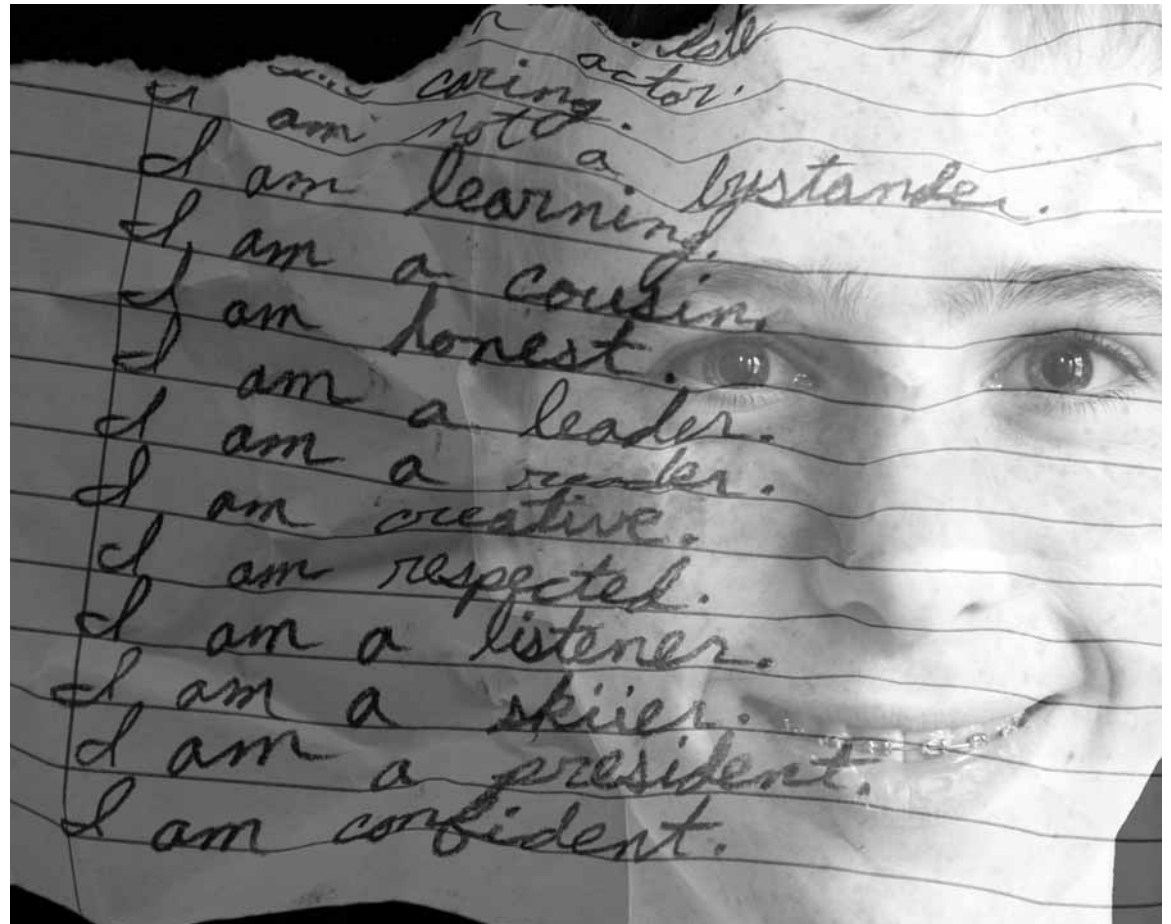 actor.
caring.
I am not a bystander.
I am learning.
I am a cousin.
I am honest.
I am a leader.
I am a reader.
I am creative.
I am respected.
I am a listener.
I am a skiier.
I am a president.
I am confident.